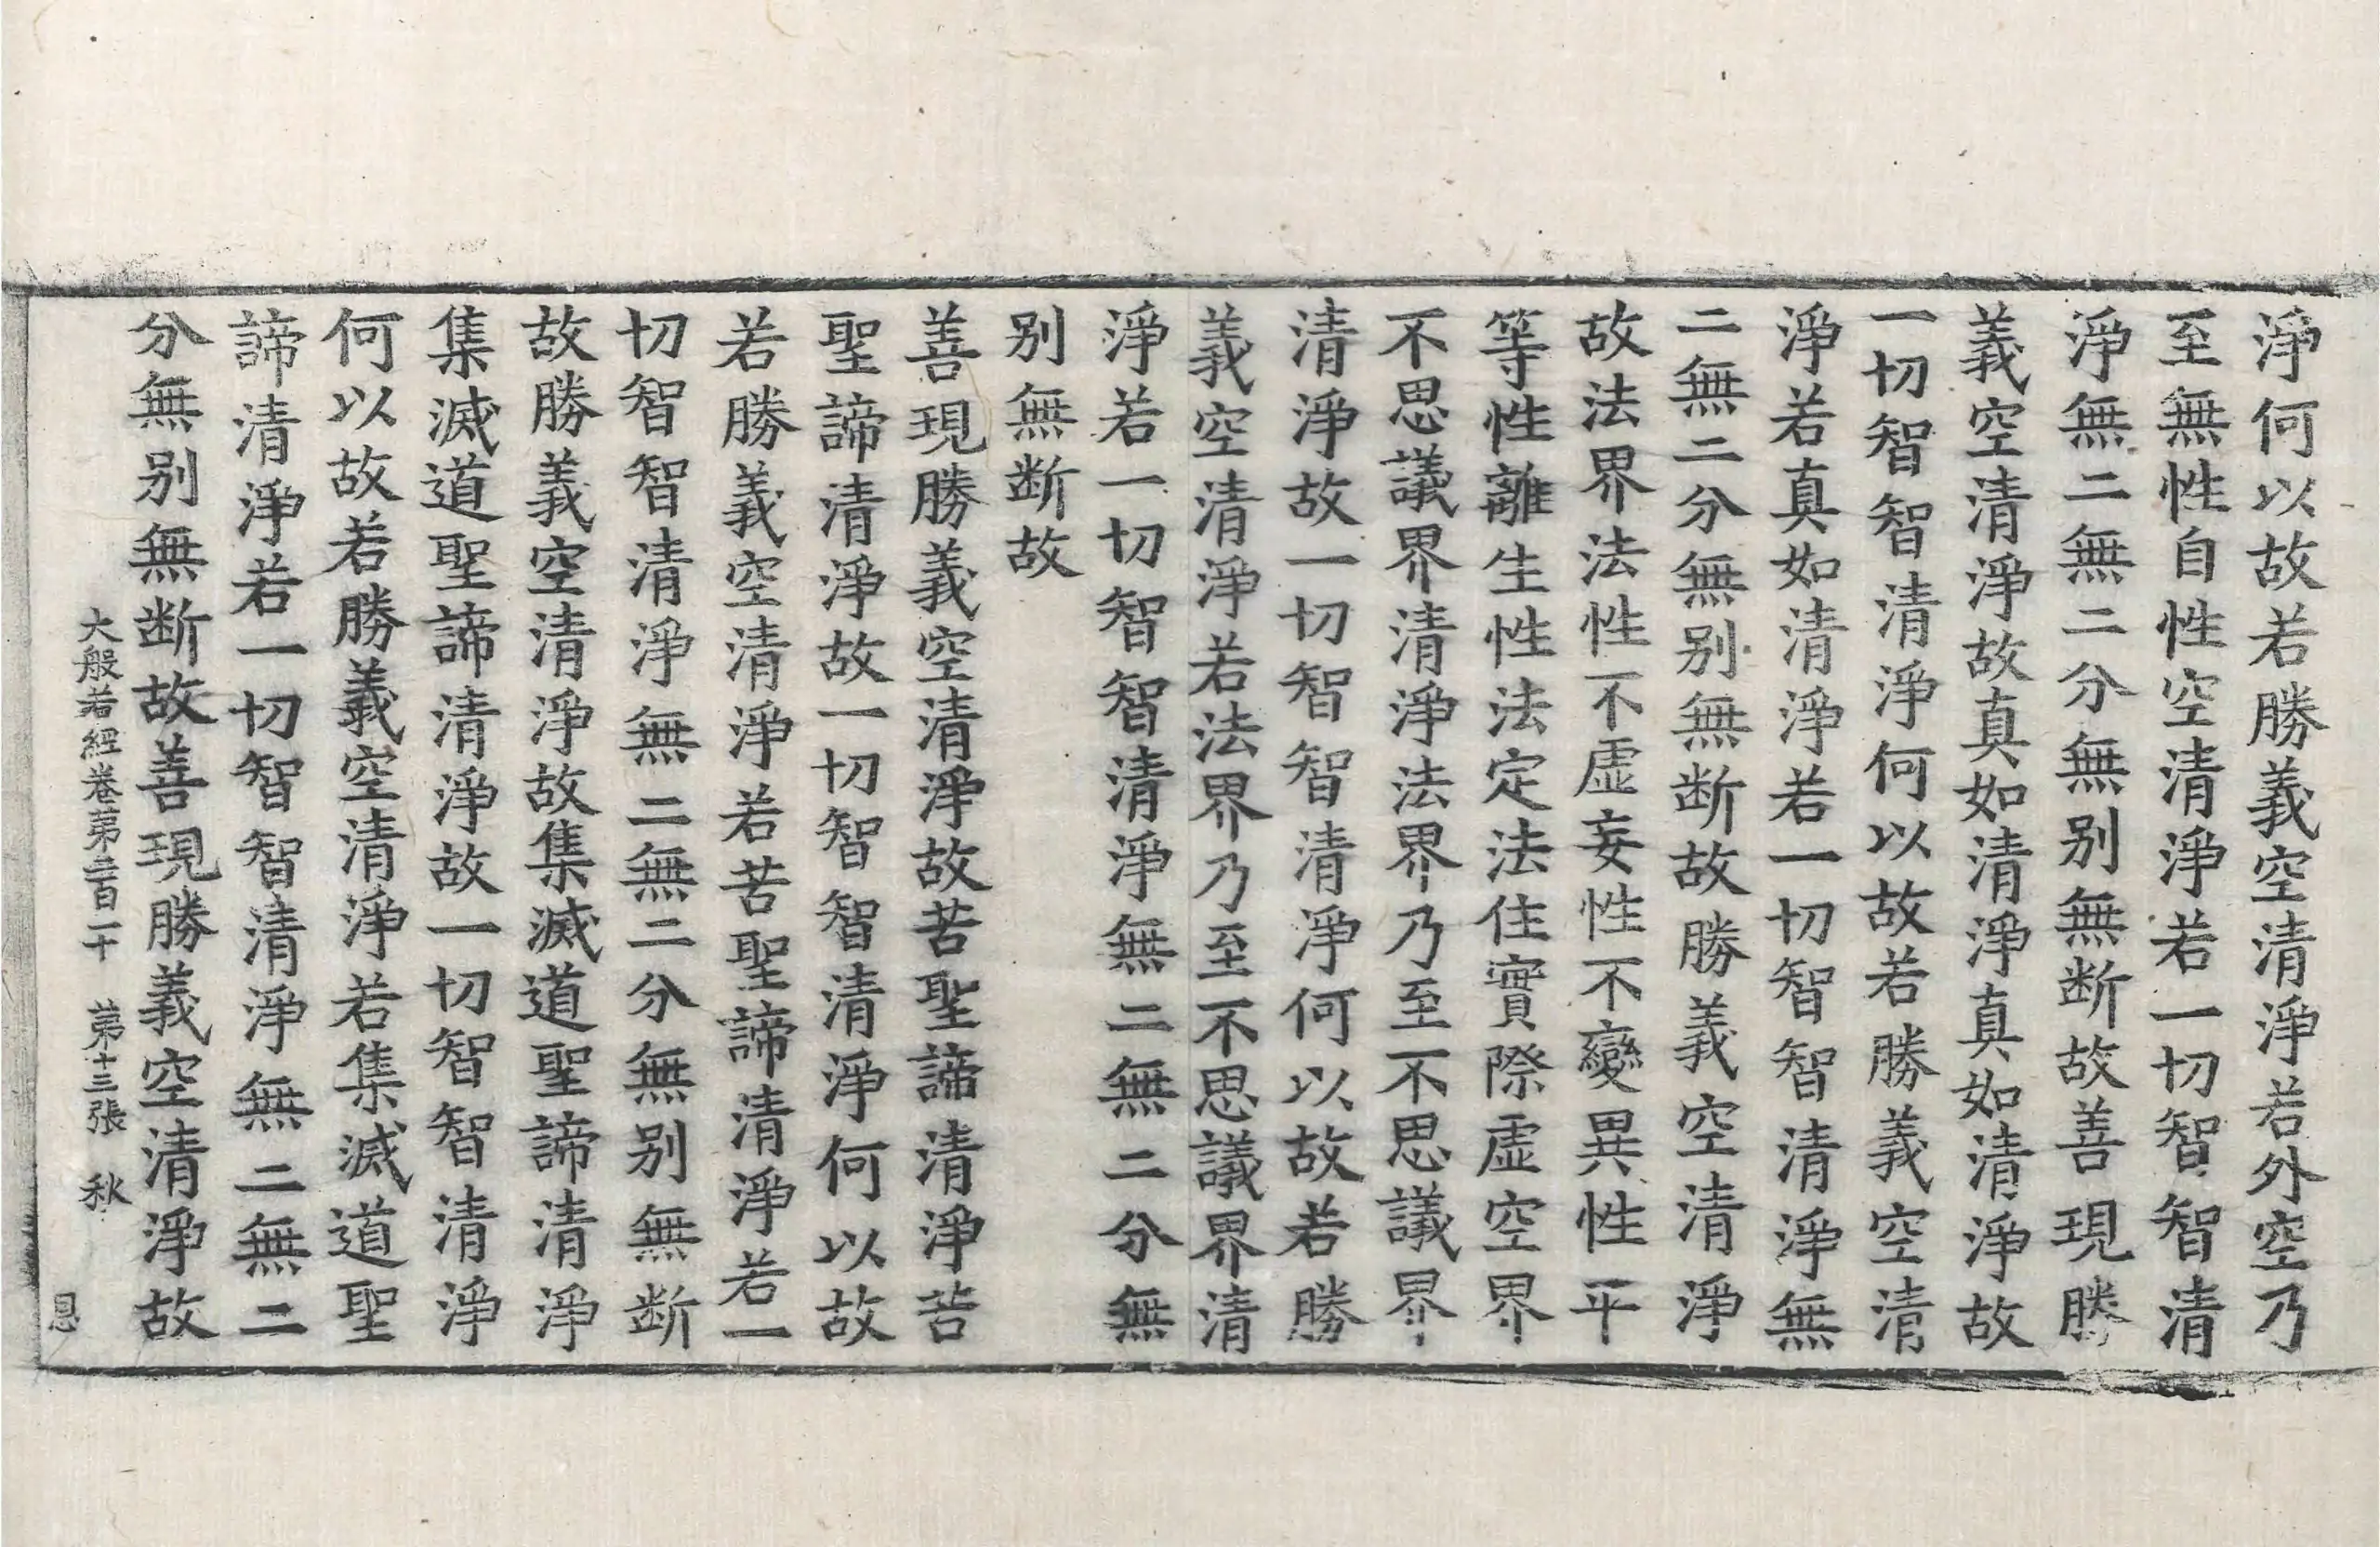 淨何以故若勝義空清淨若外空乃
至無性自性空清淨若一切智智清
淨無二無二分無别無斷故善現勝
義空清淨故真如清淨真如清淨故
一切智智清淨何以故若勝義空清
淨若真如清淨若一切智智清淨無
二無二分無别無断故勝義空清淨
故法界法性不虛妄性不變異性平
等性離生性法定法住實際虛空界
不思議界清淨法界乃至不思議界
清淨故一切智智清淨何以故若勝
義空清淨若法界乃至不思議界清
淨若一切智智清淨無二無二分無
别無断故
善現勝義空清淨故苦聖諦清淨苦
聖諦清淨故一切智智清淨何以故
若勝義空清淨若苦聖諦清淨若一
切智智清淨無二無二分無别無断
故勝義空清淨故集滅道聖諦清淨
集滅道聖諦清淨故一切智智清淨
何以故若勝義空清淨若集滅道聖
諦清淨若一切智智清淨無二無二
分無别無断故善現勝義空清淨故
大般若經卷第二百一十 第十三張 秋
恩